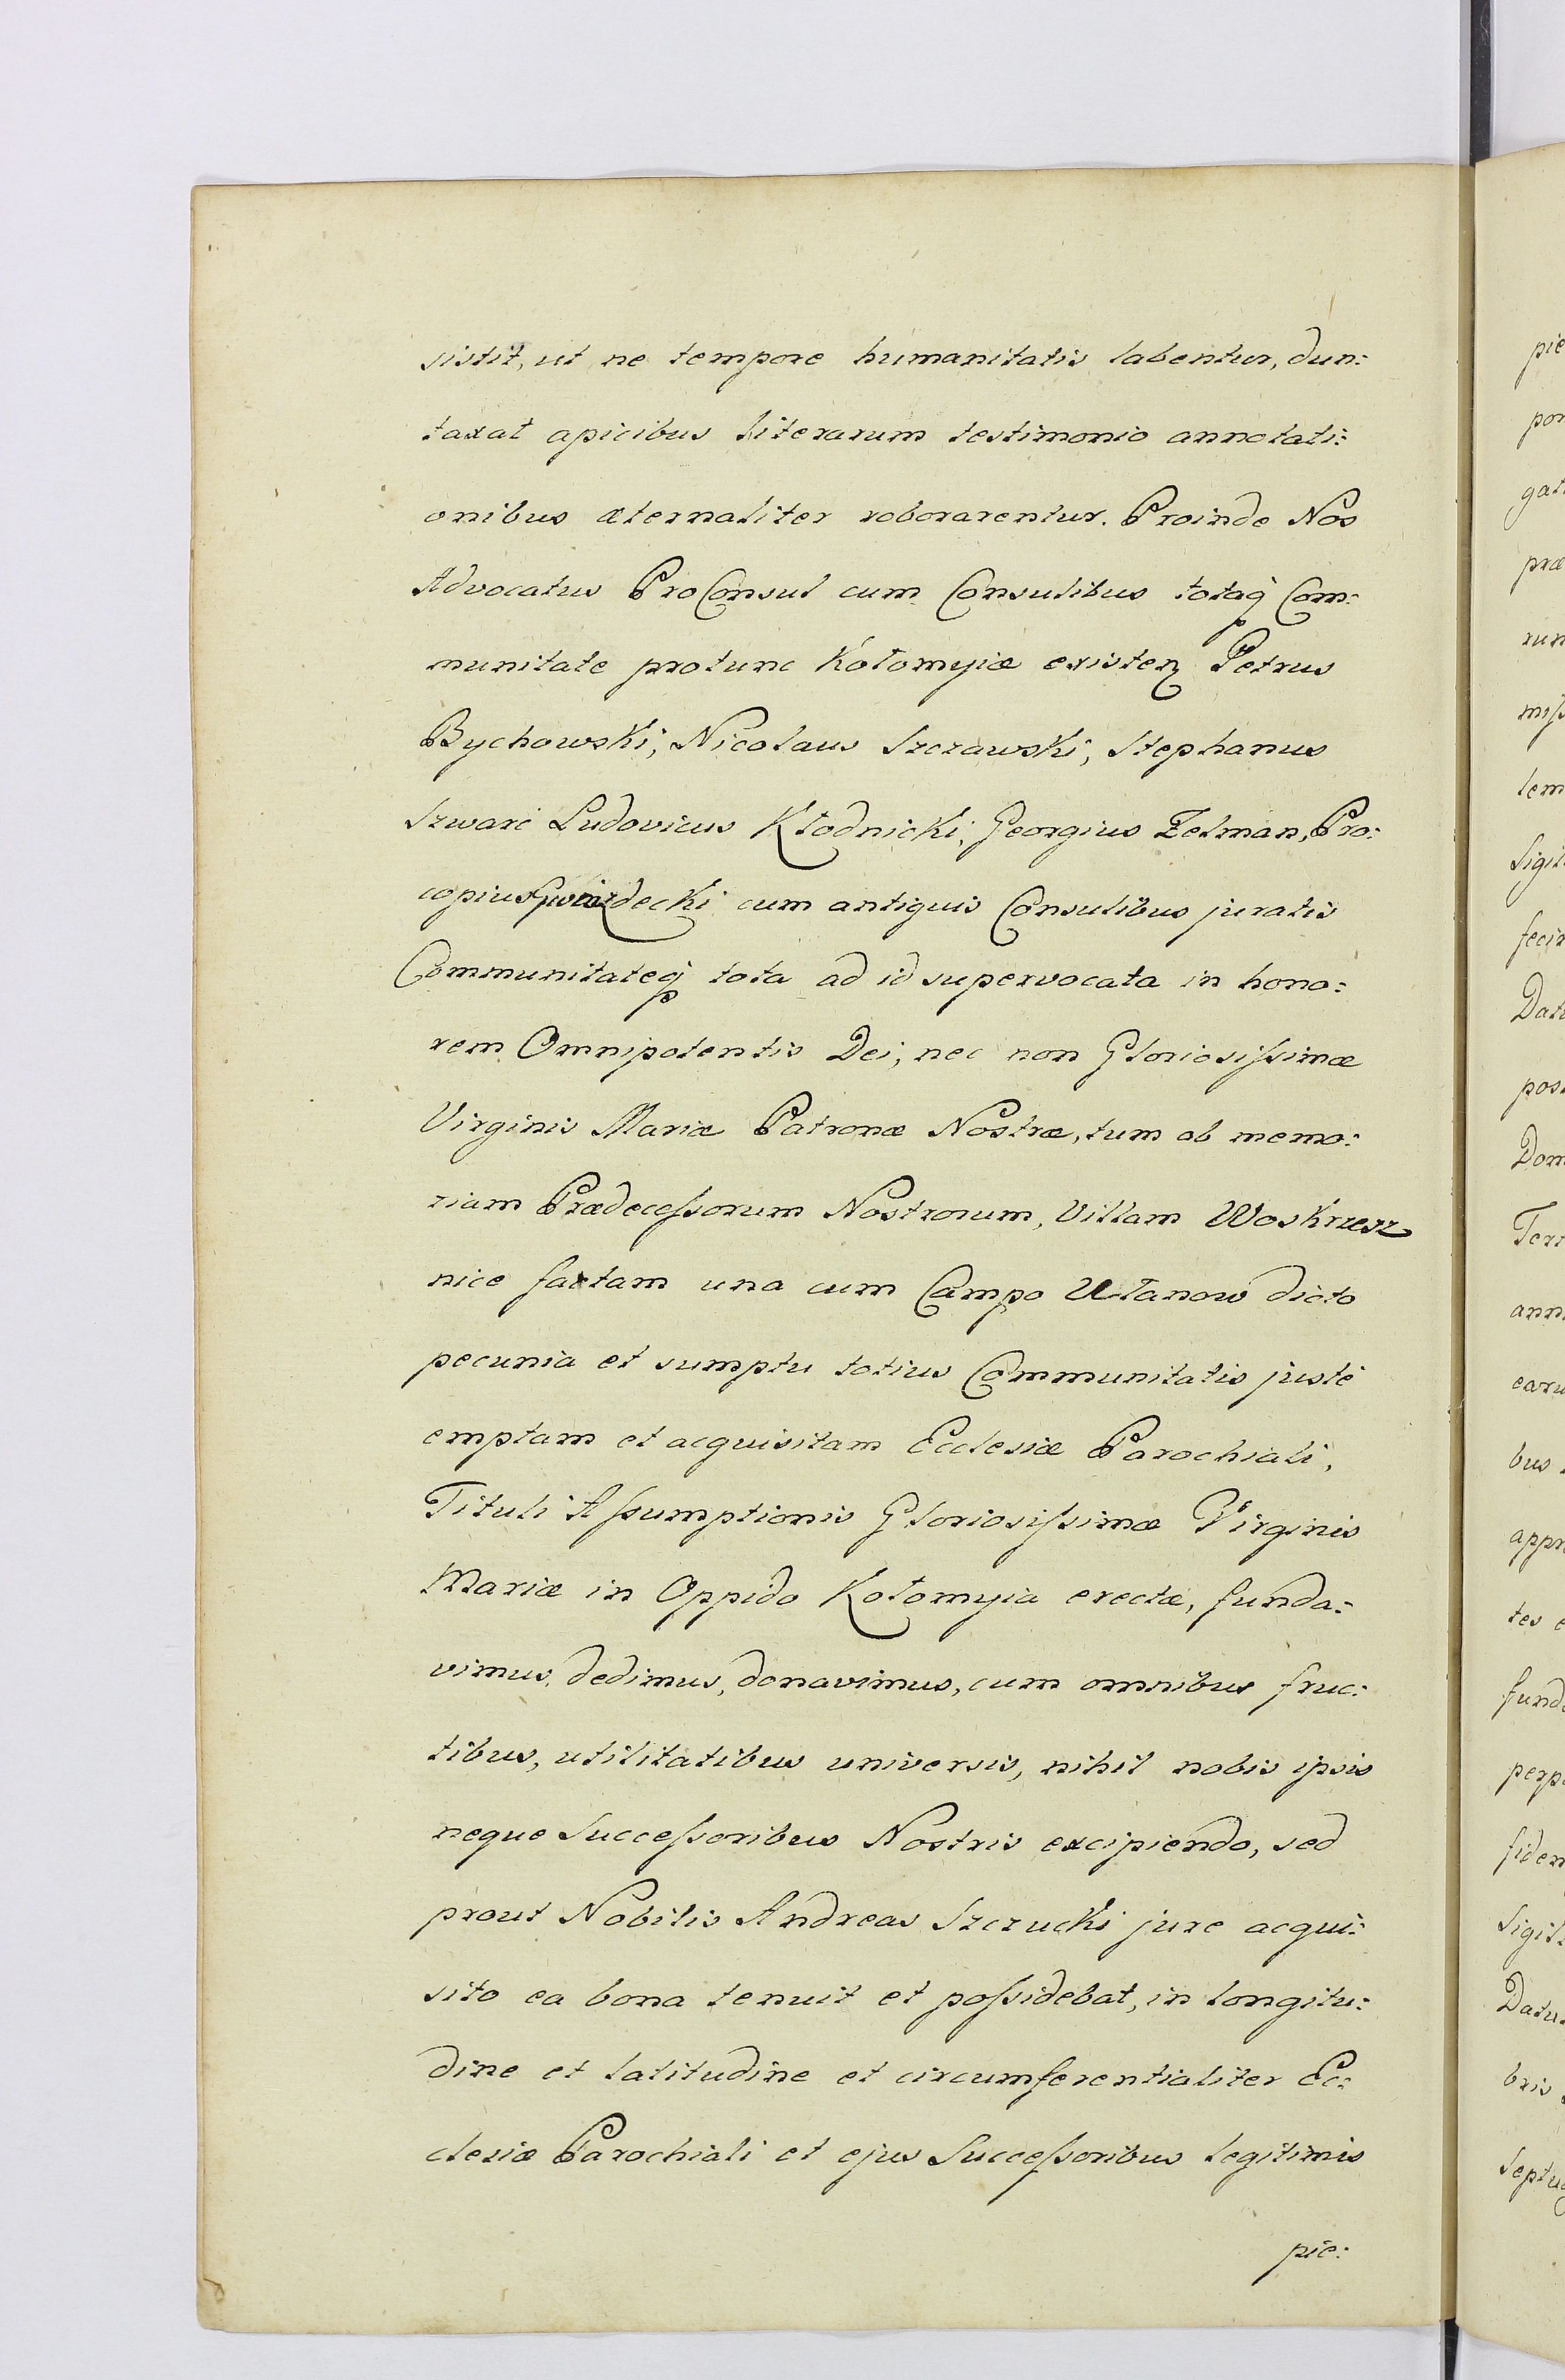 sistit, ut ne tempore humanitatis labentur, dun:
taxat apicibus literarum testimonio annotati:
onibus æternaliter roborarentur. Proinde Nos
Advocatus ProConsul cum Consulibus totaq Com:
munitate protunc Kołomyiæ existen Petrus
Bychowski, Nicolaus Szczawski, Stephanus
Szwarc Ludovicus Kłodnicki, Georgius Zelman, Pro:
copius Gwiazdecki cum antiquis Consulibus juratis
Communitateq tota ad id supervocata in hono:
rem Omnipotentis Dei, nec non Gloriosiſsimæ
Virginis Mariæ Patronæ Nostræ, tum ob memo:
riam Prædeceſsorum Nostrorum, Villam Woskrzesz
nice factam una cum Campo Utanow dicto
pecunia et sumptu totius Communitatis justè
emptam et acquisitam Ecclesiæ Parochiali,
Tituli Aſsumptionis Gloriosiſsimæ Virginis
Mariæ in Oppido Kołomyia erectæ, funda:
vimus, dedimus, donavimus, cum omnibus fruc:
tibus, utilitatibus universis, nihil nobis ipsis
neque Succeſsoribus Nostris excipiendo, sed
prout Nobilis Andreas Szczucki jure acqui:
sito ea bona tenuit et poſsidebat, in longitu:
dine et latitudine et circumferentialiter Ec:
clesiæ Parochiali et ejus Succeſsoribus legitimis
pie:
pie
por
gat
præ
run
miſs
tem
Sigil
fecin
Datu
post
Dom
Terr
ann
earu
bus
appr
tes
fund
perp
fidem
Sigil
Datu
bris
Septu